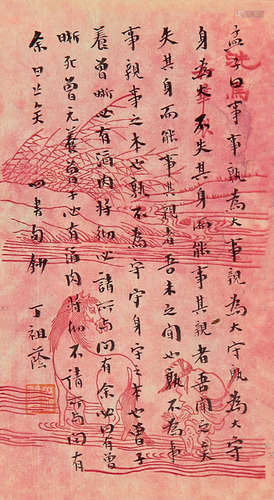 孟子曰事事孰為大事親為大守孰為大守
身為大不失其身而能事其親者吾聞之矣
失其身而能事其親者吾未之聞也孰不為事
事親事之本也孰不為守守身守之本也曾子
養曾晰必有酒肉將徹必請所与問有余必曰有曾
晰死曾元養曾子必有酒肉將徹不請所与問有
余曰亡矣 四書句 丁祖蔭